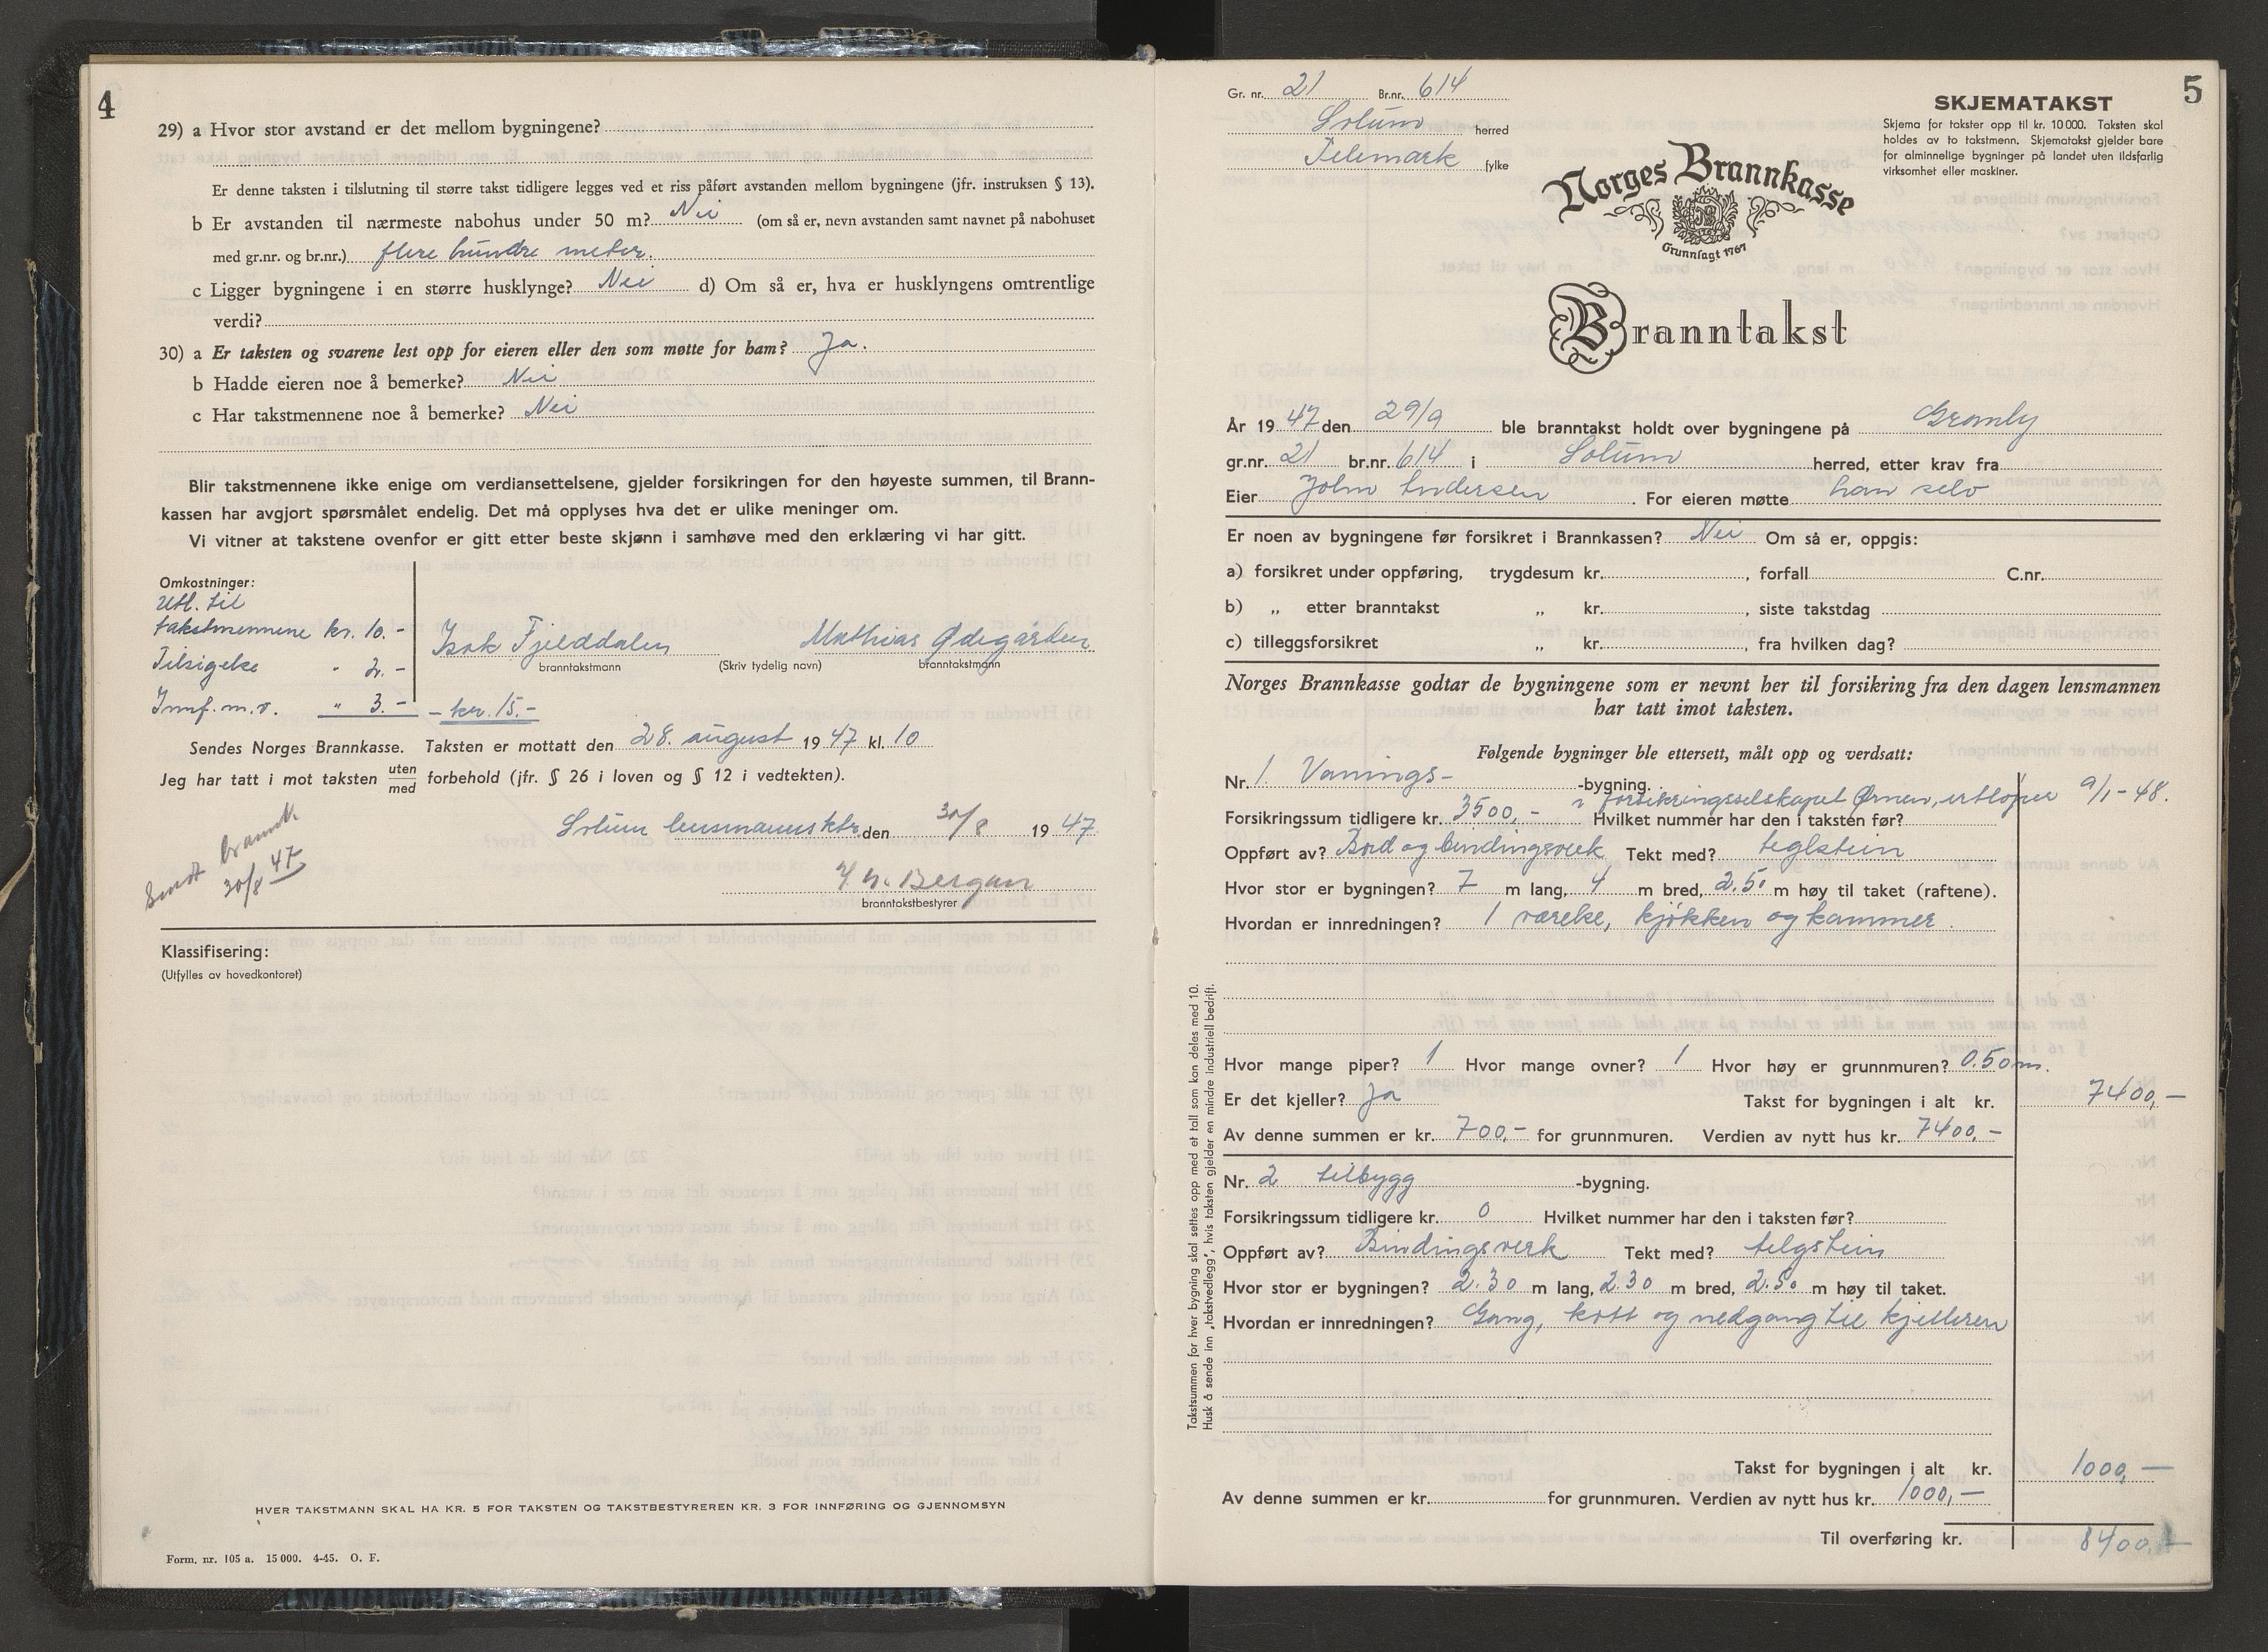 4
29) a Hvor stor avstand er det mellom bygningene?
Er denne taksten i tilslutning til større takst tidligere legges ved et riss påført avstanden mellom bygningene (jfr. instruksen § 13).
b Er avstanden til nærmeste nabohus under 50 m? Nei (om så er, nevn avstanden samt navnet på nabohuset
med gr.nr. og br.nr.) flere hundre meter.
c Ligger bygningene i en større husklynge? Nei d) Om så er, hva er husklyngens omtrentlige
verdi?
30) a Er taksten og svarene lest opp for eieren eller den som møtte for ham? Ja.
b Hadde eieren noe å bemerke? Nei
c Har takstmennene noe å bemerke? Nei
Blir takstmennene ikke enige om verdiansettelsene, gjelder forsikringen for den høyeste summen, til Brann-
kassen har avgjort spørsmålet endelig. Det må opplyses hva det er ulike meninger om.
Vi vitner at takstene ovenfor er gitt etter beste skjønn i samhøve med den erklæring vi har gitt.
Omkostninger:
Utl. til
takstmennene kr. 10.-
Tilsigelse " 2.-
Innf. m.v. " 3.- - kr. 15.-
Isak Fjelddalen Mathias Ødegården
branntakstmann (Skriv tydelig navn) branntakstmann
Sendes Norges Brannkasse. Taksten er mottatt den 28. august 1947 kl. 10
Jeg har tatt i mot taksten uten/med forbehold (jfr. § 26 i loven og § 12 i vedtekten).
Solum lensmannsktr. den 30/8 1947
Bergan
branntakstbestyrer
Sendt brannk.
30/8 47
Klassifisering:
(Utfylles av hovedkontoret)
HVER TAKSTMANN SKAL HA KR. 5 FOR TAKSTEN OG TAKSTBESTYREREN KR. 3 FOR INNFØRING OG GJENNOMSYN
Form. nr. 105 a. 15 000. 4-45. O. F.
5
Gr. nr. 21 Br.nr. 614
Solum herred
Telemark fylke
SKJEMATAKST
Skjema for takster opp til kr. 10 000. Taksten skal
holdes av to takstmenn. Skjematakst gjelder bare
for alminnelige bygninger på landet uten ildsfarlig
virksomhet eller maskiner.
Norges Brannkasse
Grunnlagt 1767
Branntakst
År 1947 den 29/9 ble branntakst holdt over bygningene på Gromly
gr.nr. 21 br.nr. 614 i Solum herred, etter krav fra
Eier John Andersen. For eieren møtte han selv
Er noen av bygningene før forsikret i Brannkassen? Nei Om så er, oppgis:
a) forsikret under oppføring, trygdesum kr. , forfall C.nr.
b) „ etter branntakst „ kr. , siste takstdag
c) tilleggsforsikret „ kr. , fra hvilken dag?
Norges Brannkasse godtar de bygningene som er nevnt her til forsikring fra den dagen lensmannen
har tatt imot taksten.
Følgende bygninger ble ettersett, målt opp og verdsatt:
Nr. 1. Vånings- -bygning.
i forsikringsselskapet Ørnen, utløper 9/1-48.
Forsikringssum tidligere kr. 3500,- Hvilket nummer har den i taksten før?
Oppført av? Bord og bindingsverk Tekt med? teglstein
Hvor stor er bygningen? 7 m lang, 4 m bred, 2.50 m høy til taket (raftene).
Hvordan er innredningen? 1 værelse, kjøkken og kammer.
Hvor mange piper? 1 Hvor mange ovner? 1 Hvor høy er grunnmuren? 0.50 m.
Er det kjeller? Ja Takst for bygningen i alt kr. 7400,-
Av denne summen er kr. 700,- for grunnmuren. Verdien av nytt hus kr. 7400,-
Nr. 2 tilbygg -bygning.
Forsikringssum tidligere kr. 0 Hvilket nummer har den i taksten før?
Oppført av? Bindingsverk Tekt med? telgstein
Hvor stor er bygningen? 2.30 m lang, 2.30 m bred, 2.50 m høy til taket.
Hvordan er innredningen? Gang, kott og nedgang til kjelleren
Takst for bygningen i alt kr. 1000,-
Av denne summen er kr. for grunnmuren. Verdien av nytt hus kr. 1000,-
Til overføring kr. 8400,-
Takstsummen for hver bygning skal settes opp med et tall som kan deles med 10.
Husk å sende inn „takstvedlegg", hvis taksten gjelder en mindre industriell bedrift.